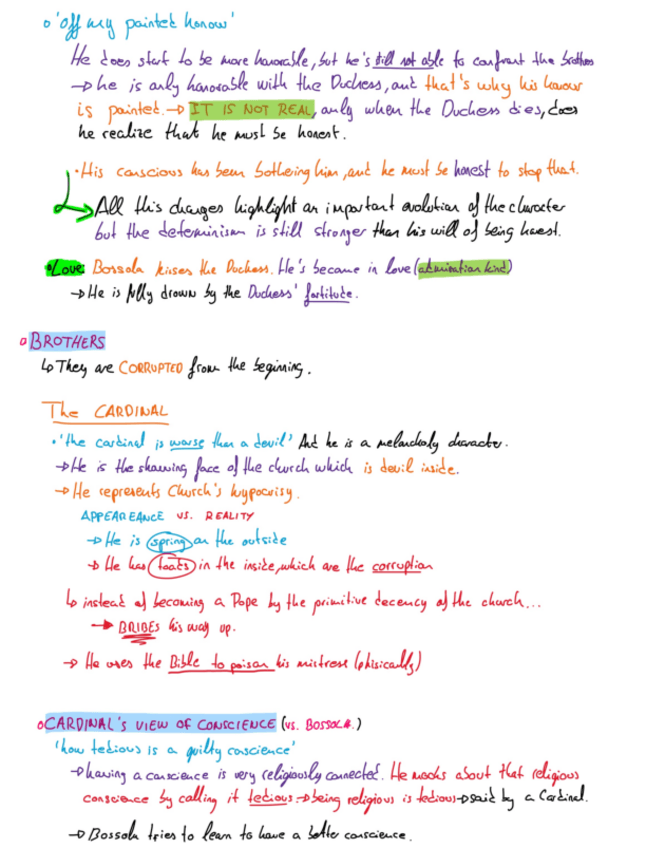 'off my painted honour'
He does start to be more honorable, but he's still not able to confront the brothers
→ he is only honorable with the Duchess, and that's why his honour
is painted. → IT IS NOT REAL, only when the Duchess dies, does
he realize that he must be honest.
· His conscious has been bothering him, and he must be honest to stop that.
→ All this changes highlight an important evolution of the character
but the determinism is still stronger than his will of being honest.
Love: Bossola kisses the Duchess. He's became in love (admiration kind)
→ He is fully drown by the Duchess' fortitude.
BROTHERS
↳ They are CORRUPTED from the beginning.
The CARDINAL
· 'the cardinal is worse than a devil' And he is a melancholy character.
→ He is the showing face of the church which is devil inside.
→ He represents Church's hypocrisy.
APPEAREANCE vs. REALITY
→ He is spring on the outside
→ He has toads in the inside, which are the corruption
↳ instead of becoming a Pope by the primitive decency of the church...
→ BRIBES his way up.
→ He uses the Bible to poison his mistress (phisically)
CARDINAL'S VIEW OF CONSCIENCE (vs. BOSSOLA.)
'how tedious is a guilty conscience'
→ having a conscience is very religiously connected. He mocks about that religious
conscience by calling it tedious → being religious is tedious → said by a Cardinal.
→ Bossola tries to learn to have a better conscience.